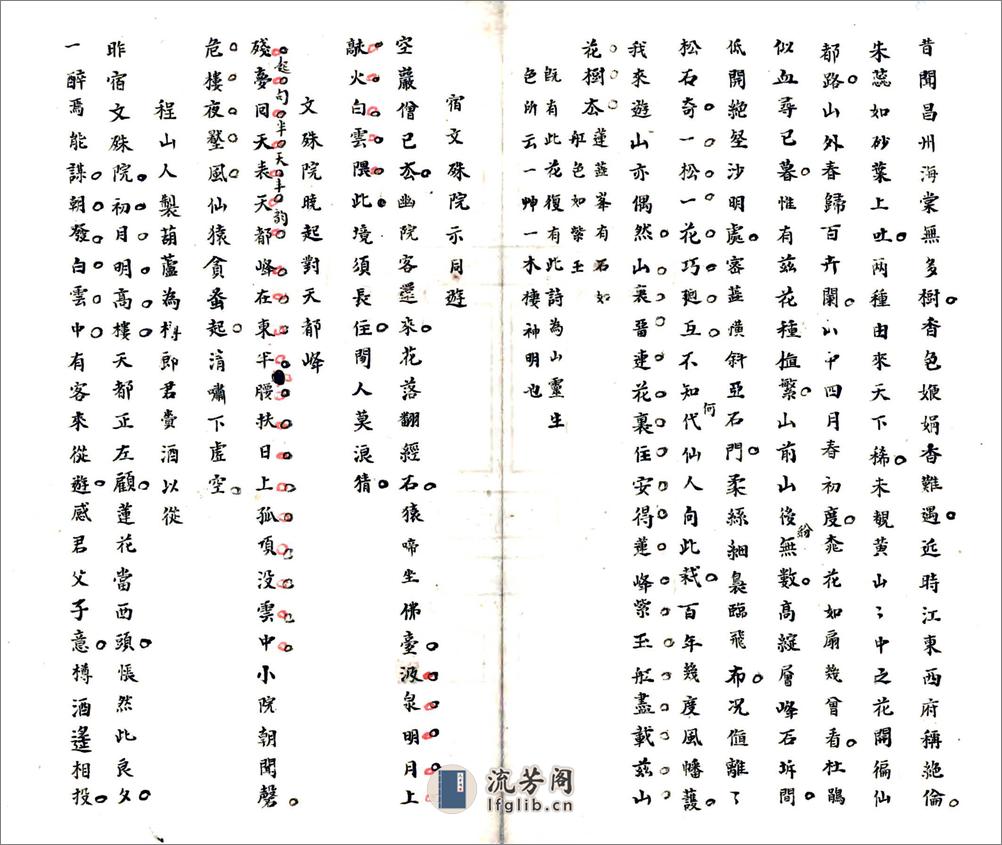 昔聞昌州海棠無多樹香色嬛娟香難遇近時江東西府稱絕倫
朱蕊如砂葉上吐兩種由來天下稀未覩黃山〻中之花開徧仙
都路山外春歸百卉闌山中四月春初度花如扇幾曾看杜鵑
似血尋已暮惟有茲花種植繁山前山後無數高綻層峰石坼間
紛
低開絕壑沙明處密蕋橫斜亞石門柔絲細裊臨飛布况値離〻
松石奇一松一花巧迴互不知代仙人向此栽百年幾度風幡護
何
我來遊山亦偶然山裏晉連花裏住安得蓮峰紫玉舡盡載茲山
花樹去
蓮蕋峯有石如
舡色如紫玉
既有此花復有此詩為山靈生
色所云一艸一木棲神明也
宿文殊院示同遊
空巖僧已去幽院客還來花落翻經石猿啼坐佛臺汲泉明月上
敲火白雲隈此境須長住間人莫浪猜
文殊院曉起對天都峰
起句半天半韵
殘夢同天表天都峰在東半腰扶日上孤頂没雲中小院朝聞磬
危樓夜壑風仙猿貪蚤起清嘯下虛空
程山人製葫蘆為樽郎君賫酒以從
昨宿文殊院初月明高樓天都正左顧蓮花當西頭悵然此良夕
一醉焉能謀朝發白雲中有客來從遊感君父子意樽酒遙相投
流芳阁
lfglib.cn